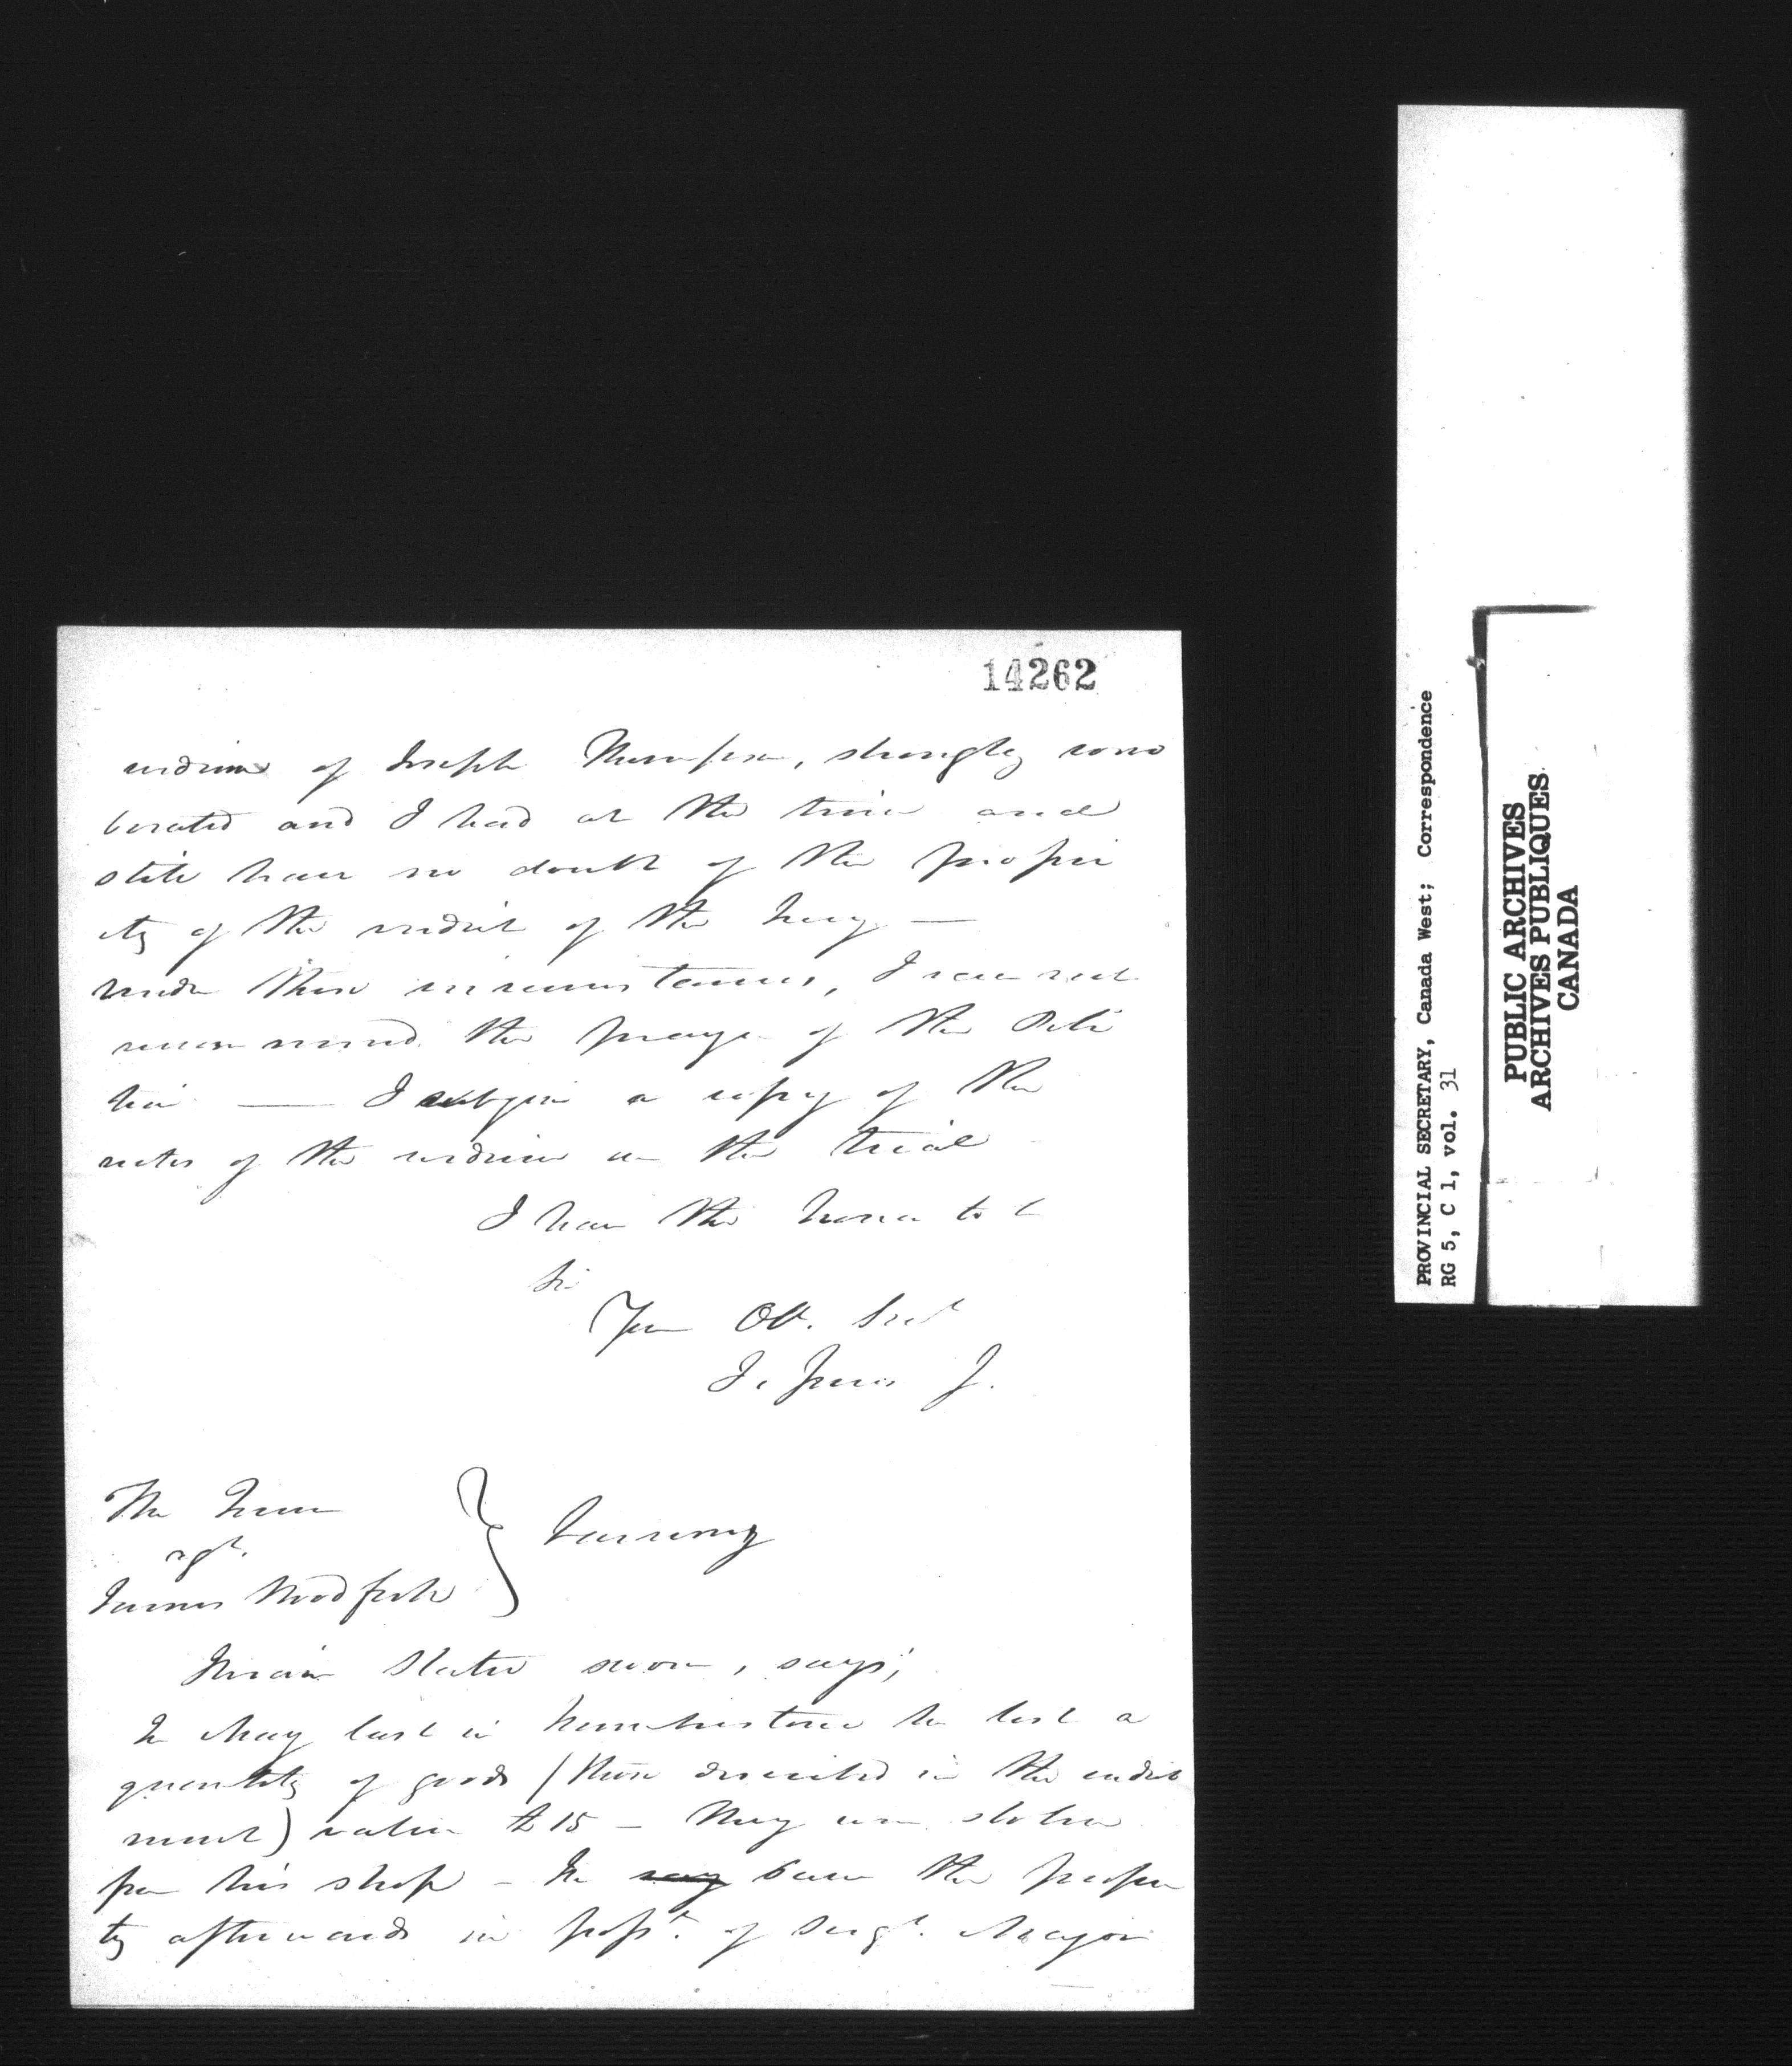 14262
evidence of Joseph Thompson, strongly corro
borated and I had at the time and
still have no doubt of the propri
ety of the verdict of the Jury —
under these circumstances, I can not
recommend the prayer of the Peti
tion — I subjoin a copy of the
notes of the evidence on the trial
I have the honor to be
Sir
Your Obt. Servt
J. Jones J.
The Queen
agt.
James Woodfork
} Larceny
Slater sworn, says;
In May last in he lost a
quantity of goods (those described in the indict
ment) value £15 – They were stolen
from his shop – He saw the proper
ty afterwards in possn. of Sergt. Major
PROVINCIAL SECRETARY, Canada West; Correspondence
RG 5, C 1, vol. 31
PUBLIC ARCHIVES
ARCHIVES PUBLIQUES
CANADA